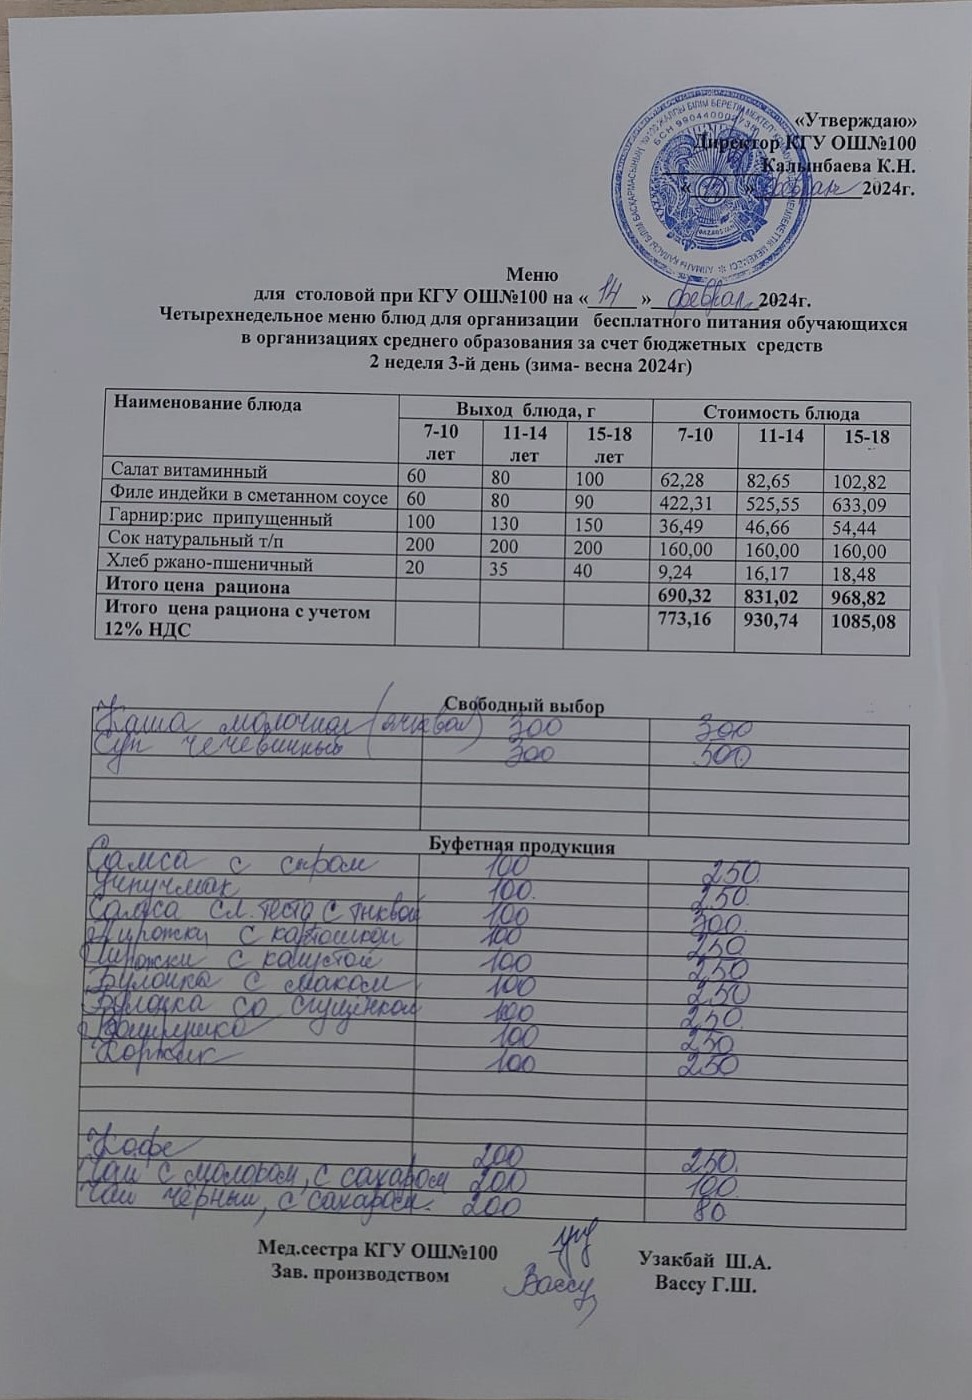 «Утверждаю»
Директор КГУ ОШ№100
Калынбаева К.Н.
« 14 » феврал 2024г.
Меню
для столовой при КГУ ОШ№100 на « 14 » феврал 2024г.
Четырехнедельное меню блюд для организации бесплатного питания обучающихся
в организациях среднего образования за счет бюджетных средств
2 неделя 3-й день (зима- весна 2024г)
Наименование блюда Выход блюда, г Стоимость блюда
7-10 лет 11-14 лет 15-18 лет 7-10 11-14 15-18
Салат витаминный 60 80 100 62,28 82,65 102,82
Филе индейки в сметанном соусе 60 80 90 422,31 525,55 633,09
Гарнир:рис припущенный 100 130 150 36,49 46,66 54,44
Сок натуральный т/п 200 200 200 160,00 160,00 160,00
Хлеб ржано-пшеничный 20 35 40 9,24 16,17 18,48
Итого цена рациона 690,32 831,02 968,82
Итого цена рациона с учетом
12% НДС 773,16 930,74 1085,08
Свободный выбор
Каша молочная 300 300
Суп чечевичный 300 500
Буфетная продукция
Самса с сыром 100 250
Учпучмак 100 250
Самса сл. теста с тыквой 100 300
Пирожки с картошкой 100 250
Пирожки с капустой 100 250
Булочки с маком 100 250
Булочка со сгущёнкой 100 250
Ватрушка 100 250
Коржик 100 250
Кофе 200 250
Чай с молоком, с сахаром 200 100
Чай чёрный, с сахаром. 200 80
Мед.сестра КГУ ОШ№100 Узакбай Ш.А.
Зав. производством Вассу Вассу Г.Ш.